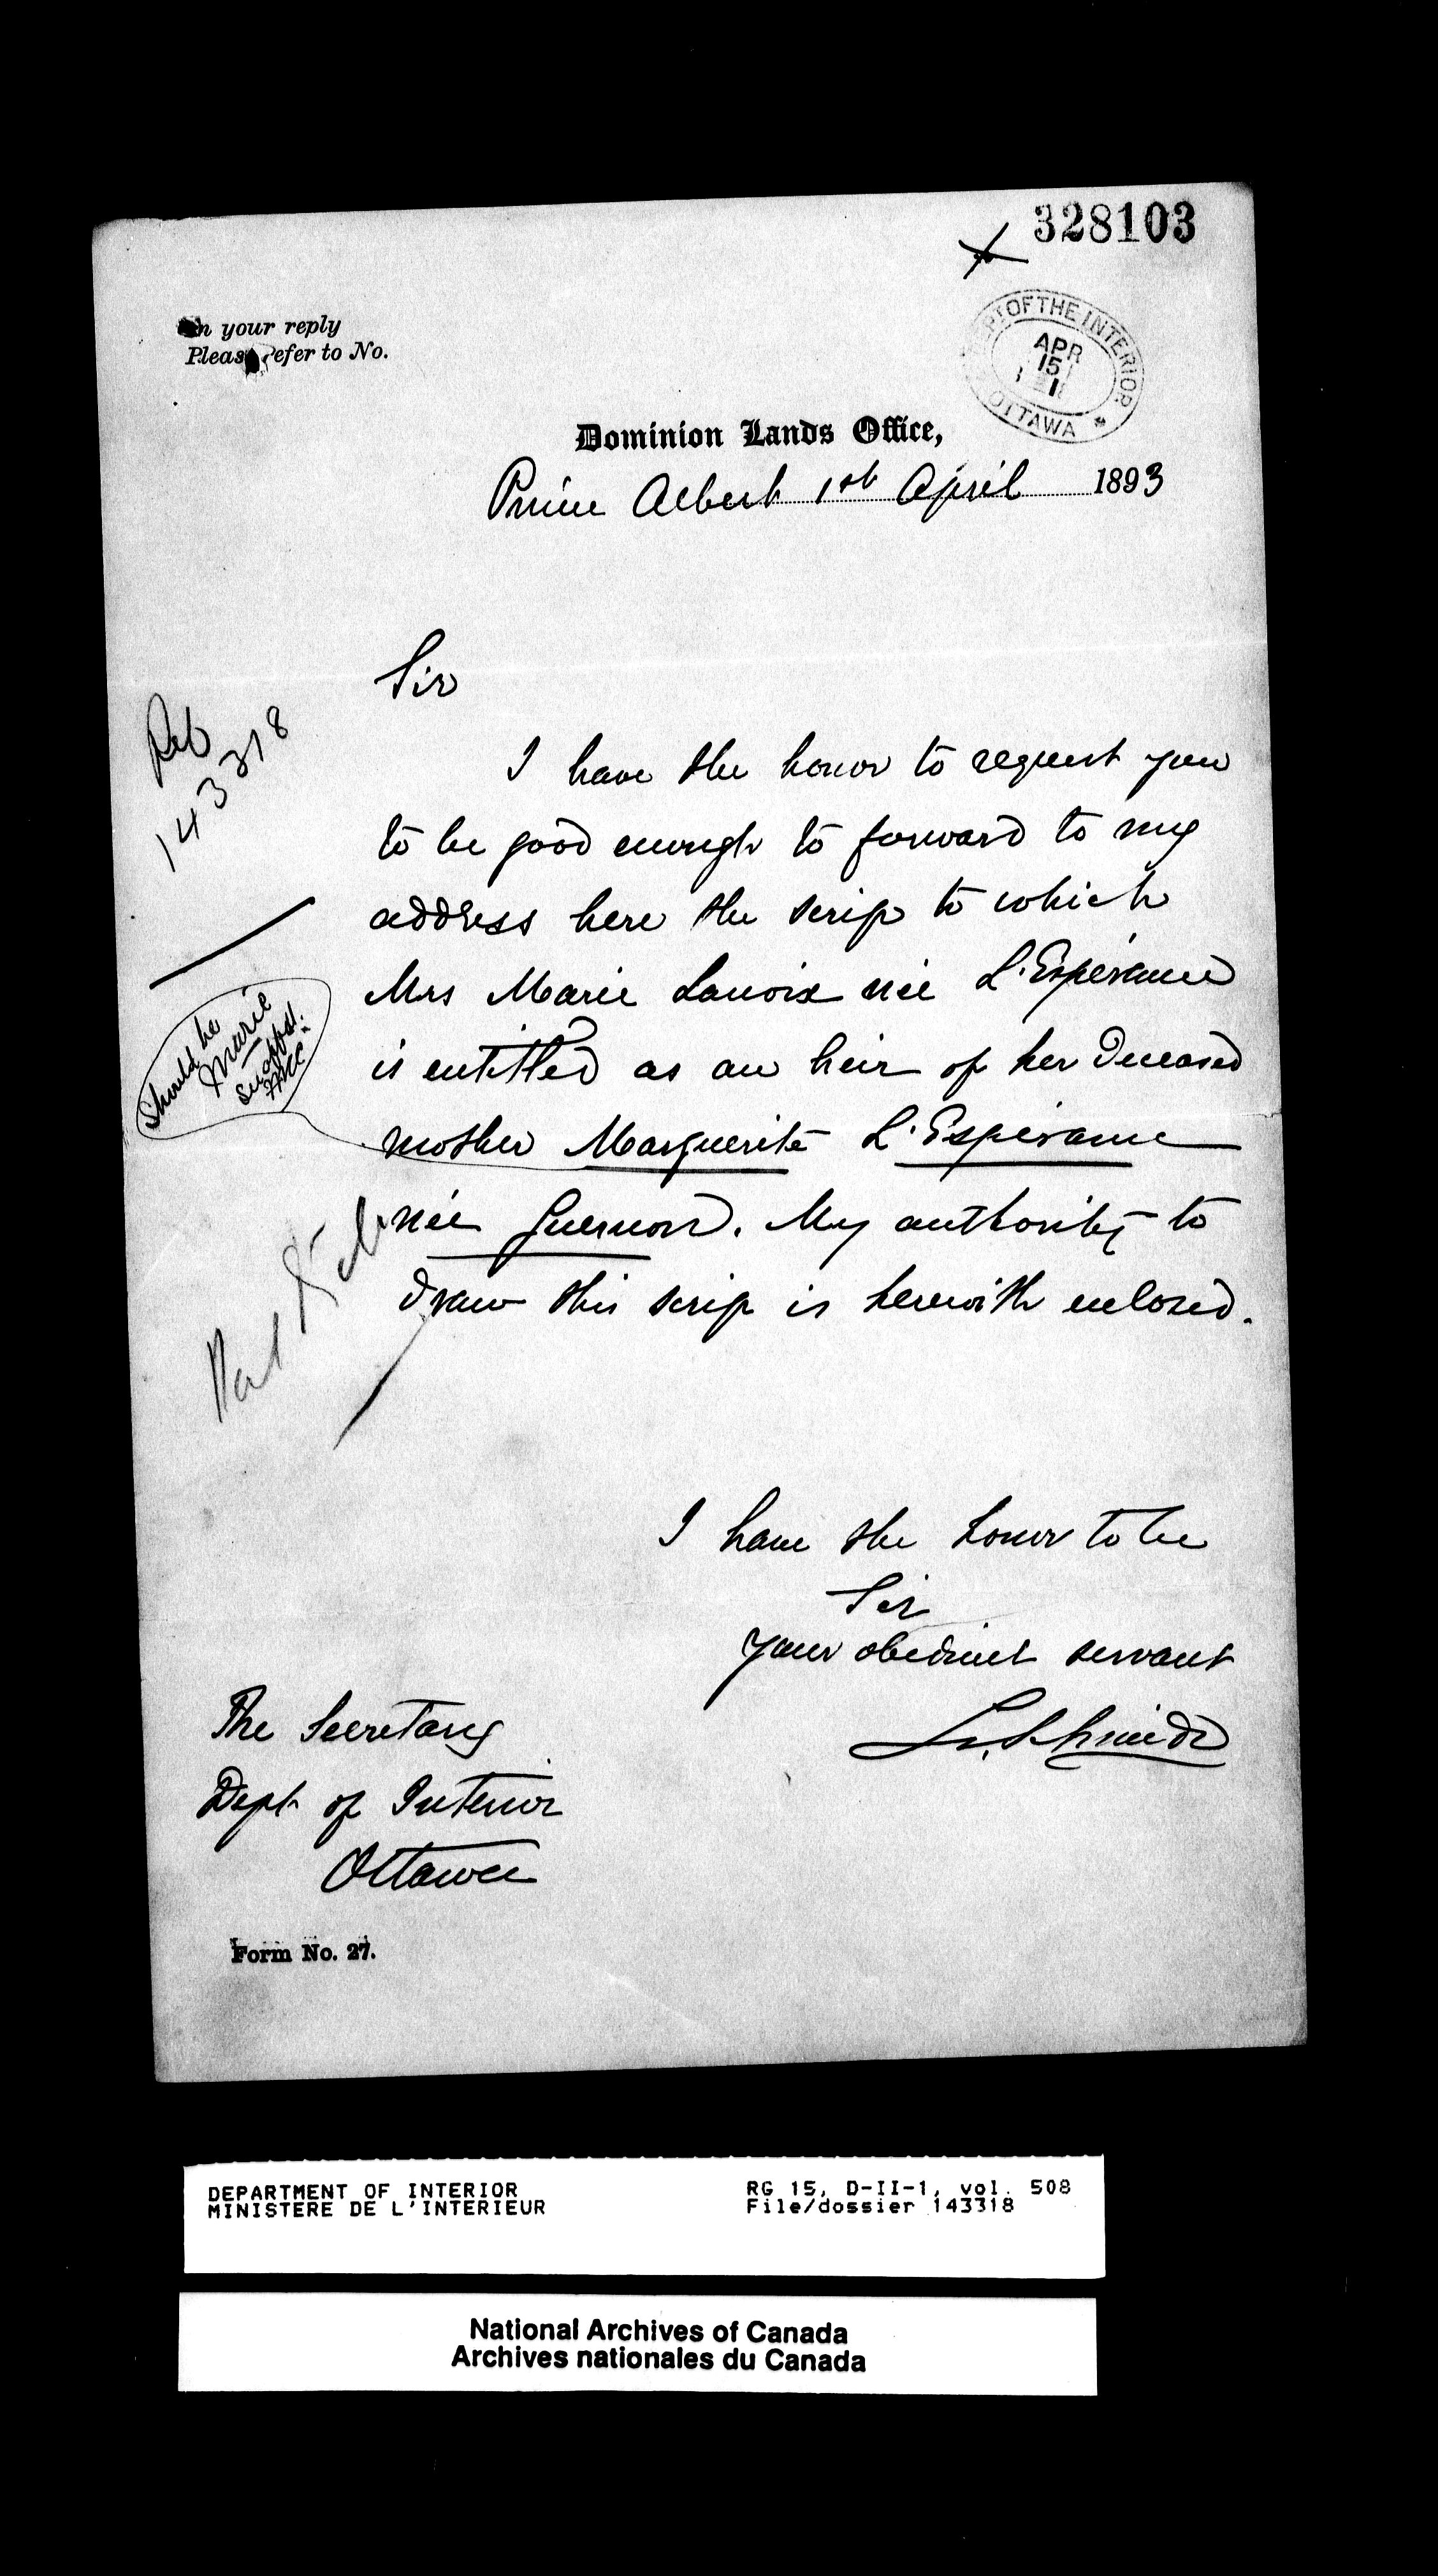 328103
In your reply
Please refer to No.
DEPT OF THE INTERIOR
APR
15
OTTAWA
Dominion Lands Office,
Prince Albert 1st April 1893
Sir
I have the honor to request you
to be good enough to forward to my
address here the scrip to which
Mrs Marie Lavoix née L'Espérance
is entitled as an heir of her deceased
mother Marguerite L'Espérance
née Guernon. My authority to
draw this scrip is herewith enclosed.
143318
Should be
Marie
I have the honor to be
Sir
your obedient servant
L. Schmidt
The Secretary
Dept of Interior
Ottawa
Form No. 27.
DEPARTMENT OF INTERIOR
MINISTERE DE L'INTERIEUR
RG 15, D-II-1, vol. 508
File/dossier 143318
National Archives of Canada
Archives nationales du Canada